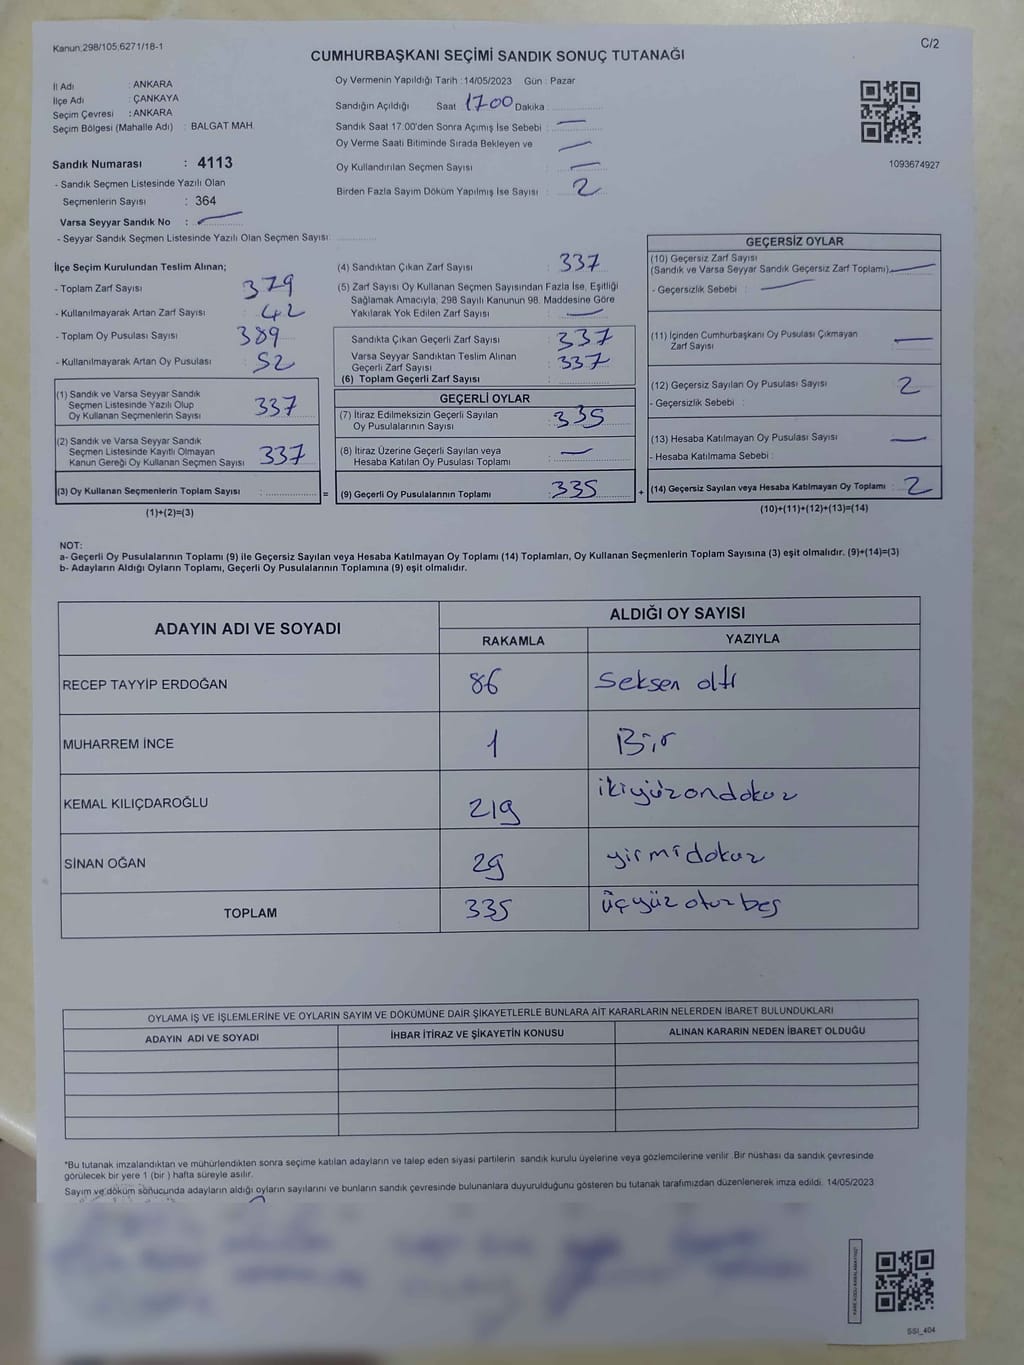 Kanun;298/105,6271/18-1
C/2
CUMHURBAŞKANI SEÇİMİ SANDIK SONUÇ TUTANAĞI
İl Adı : ANKARA
İlçe Adı : ÇANKAYA
Seçim Çevresi : ANKARA
Seçim Bölgesi (Mahalle Adı) : BALGAT MAH.
Sandık Numarası : 4113
- Sandık Seçmen Listesinde Yazılı Olan
Seçmenlerin Sayısı : 364
Varsa Seyyar Sandık No : —
- Seyyar Sandık Seçmen Listesinde Yazılı Olan Seçmen Sayısı:
Oy Vermenin Yapıldığı Tarih :14/05/2023 Gün : Pazar
Sandığın Açıldığı Saat 1700 Dakika :
Sandık Saat 17:00'den Sonra Açımış İse Sebebi : —
Oy Verme Saati Bitiminde Sırada Bekleyen ve —
Oy Kullandırılan Seçmen Sayısı : —
Birden Fazla Sayım Döküm Yapılmış İse Sayısı : 2
1093674927
İlçe Seçim Kurulundan Teslim Alınan;
- Toplam Zarf Sayısı : 379
- Kullanılmayarak Artan Zarf Sayısı : 42
- Toplam Oy Pusulası Sayısı : 389
- Kullanılmayarak Artan Oy Pusulası : 52
(1) Sandık ve Varsa Seyyar Sandık
Seçmen Listesinde Yazılı Olup
Oy Kullanan Seçmenlerin Sayısı : 337
(2) Sandık ve Varsa Seyyar Sandık
Seçmen Listesinde Kayıtlı Olmayan
Kanun Gereği Oy Kullanan Seçmen Sayısı : 337
(3) Oy Kullanan Seçmenlerin Toplam Sayısı :
(1)+(2)=(3)
(4) Sandıktan Çıkan Zarf Sayısı : 337
(5) Zarf Sayısı Oy Kullanan Seçmen Sayısından Fazla İse, Eşitliği
Sağlamak Amacıyla; 298 Sayılı Kanunun 98. Maddesine Göre
Yakılarak Yok Edilen Zarf Sayısı : —
Sandıkta Çıkan Geçerli Zarf Sayısı : 337
Varsa Seyyar Sandıktan Teslim Alınan
Geçerli Zarf Sayısı : 337
(6) Toplam Geçerli Zarf Sayısı :
GEÇERLİ OYLAR
(7) İtiraz Edilmeksizin Geçerli Sayılan
Oy Pusulalarının Sayısı : 335
(8) İtiraz Üzerine Geçerli Sayılan veya
Hesaba Katılan Oy Pusulası Toplamı : —
= (9) Geçerli Oy Pusulalarının Toplamı : 335 +
GEÇERSİZ OYLAR
(10) Geçersiz Zarf Sayısı
(Sandık ve Varsa Seyyar Sandık Geçersiz Zarf Toplamı): —
- Geçersizlik Sebebi : —
(11) İçinden Cumhurbaşkanı Oy Pusulası Çıkmayan
Zarf Sayısı : —
(12) Geçersiz Sayılan Oy Pusulası Sayısı : 2
- Geçersizlik Sebebi :
(13) Hesaba Katılmayan Oy Pusulası Sayısı : —
- Hesaba Katılmama Sebebi :
(14) Geçersiz Sayılan veya Hesaba Katılmayan Oy Toplamı : 2
(10)+(11)+(12)+(13)=(14)
NOT:
a- Geçerli Oy Pusulalarının Toplamı (9) ile Geçersiz Sayılan veya Hesaba Katılmayan Oy Toplamı (14) Toplamları, Oy Kullanan Seçmenlerin Toplam Sayısına (3) eşit olmalıdır. (9)+(14)=(3)
b- Adayların Aldığı Oyların Toplamı, Geçerli Oy Pusulalarının Toplamına (9) eşit olmalıdır.
ADAYIN ADI VE SOYADI
ALDIĞI OY SAYISI
RAKAMLA YAZIYLA
RECEP TAYYİP ERDOĞAN 86 Seksen altı
MUHARREM İNCE 1 Bir
KEMAL KILIÇDAROĞLU 219 ikiyüzondokuz
SİNAN OĞAN 29 yirmidokuz
TOPLAM 335 üçyüz otuzbeş
OYLAMA İŞ VE İŞLEMLERİNE VE OYLARIN SAYIM VE DÖKÜMÜNE DAİR ŞİKAYETLERLE BUNLARA AİT KARARLARIN NELERDEN İBARET BULUNDUKLARI
ADAYIN ADI VE SOYADI İHBAR İTİRAZ VE ŞİKAYETİN KONUSU ALINAN KARARIN NEDEN İBARET OLDUĞU
*Bu tutanak imzalandıktan ve mühürlendikten sonra seçime katılan adayların ve talep eden siyasi partilerin sandık kurulu üyelerine veya gözlemcilerine verilir. Bir nüshası da sandık çevresinde
görülecek bir yere 1 (bir ) hafta süreyle asılır.
Sayım ve döküm sonucunda adayların aldığı oyların sayılarını ve bunların sandık çevresinde bulunanlara duyurulduğunu gösteren bu tutanak tarafımızdan düzenlenerek imza edildi. 14/05/2023
SSI_404